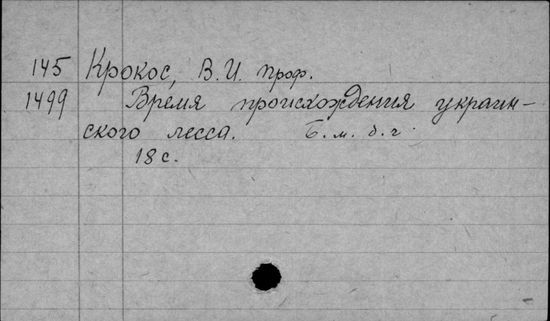 145 Крокос, В. И. проф.
1499 Время происхождения украин-
ского лесса. Б. м. б. г.
18 с.